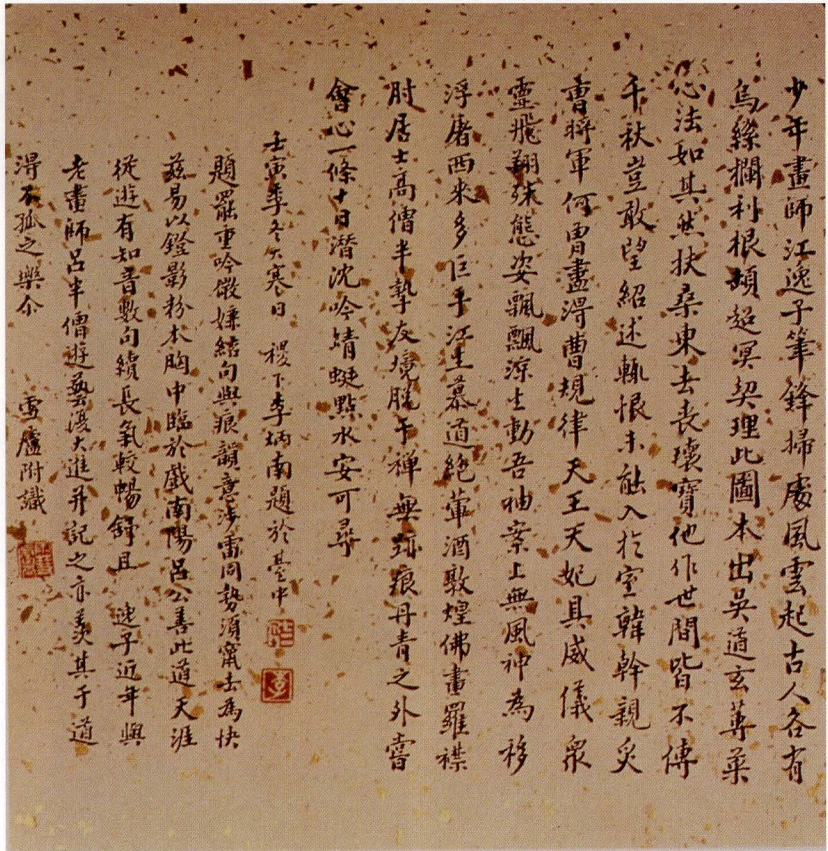 少年畫師江逸子筆鋒掃處風雲起古人各有
烏絲欄利根頓超冥契理此圖本出吳道玄蓴菜
心法如其然扶桑東去喪瓌寶他作世間皆不傳
千秋豈敢望紹述輒恨未能入於室韓幹親炙
曹將軍何曾盡得曹規律天王天妃具威儀眾
靈飛翔殊態姿飄飄涼生動吾袖案上無風神為移
浮屠西來多巨手江生慕道絕葷酒敦煌佛畫羅襟
肘居士高僧半摯友境脫乎禪無跡痕丹青之外嘗
會心一條十日潛沈吟蜻蜓點水安可尋
壬寅季冬大寒日 稷下李炳南題於臺中
題罷重吟微嫌結句與痕韻意涉雷同勢須甯去為快
茲易以鐙影粉本胸中臨於戲南陽呂公善此道天涯
從遊有知音數句續長氣較暢舒且 逸子近年與
老畫師呂半僧遊藝復大進并記之亦羨其于道
得不孤之樂介
雪廬附識